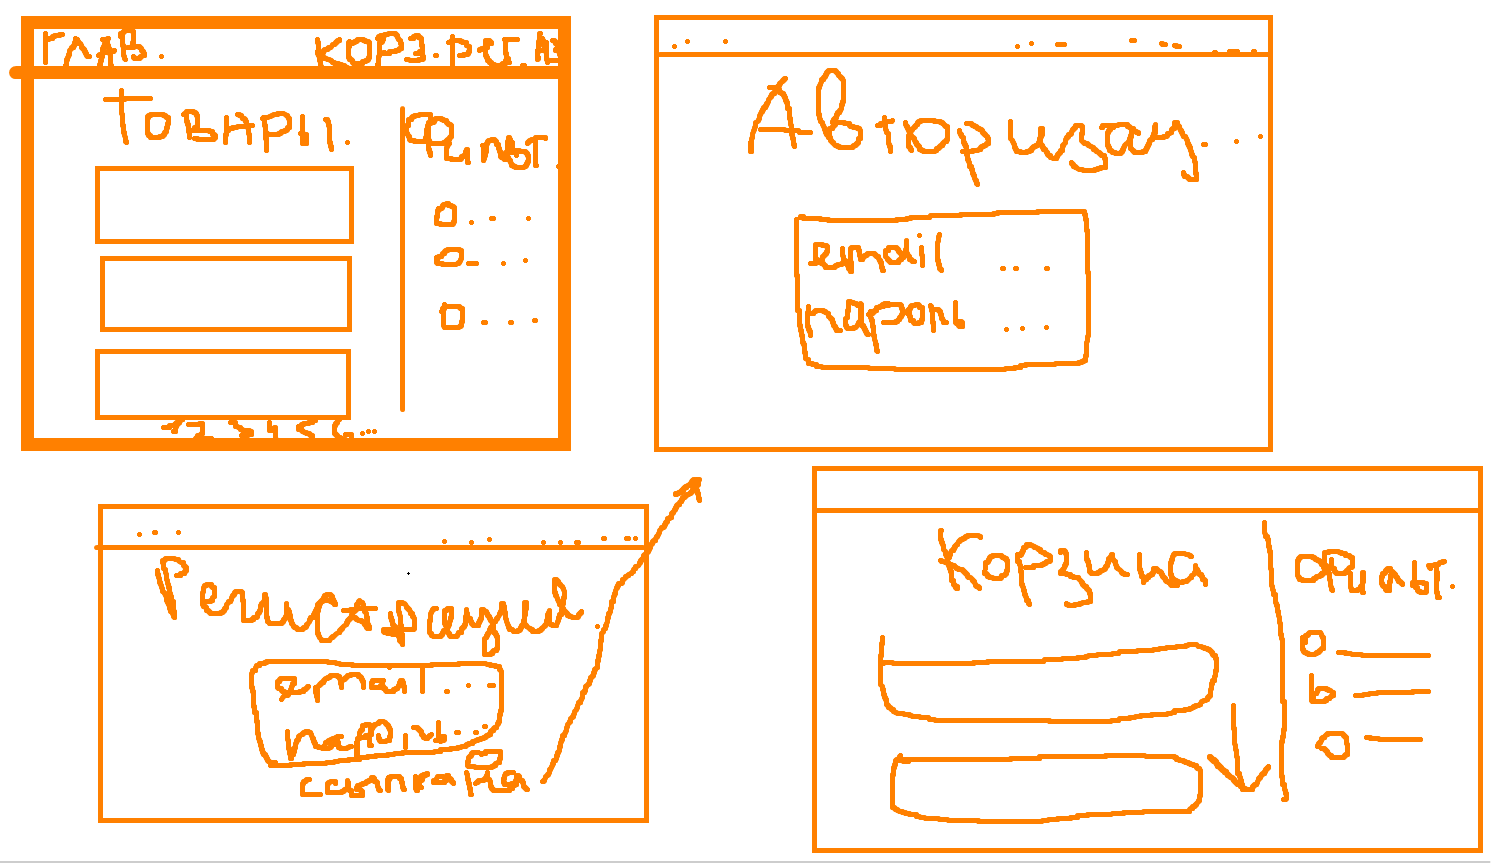 ГЛАВ. КОРЗ. рег. Ав
Товары.
Фильт.
1 2 3 4 5 6...
Авторизац...
email ...
пароль ...
Регистрация.
email...
пароль...
ссылка на
Корзина
Фильт.